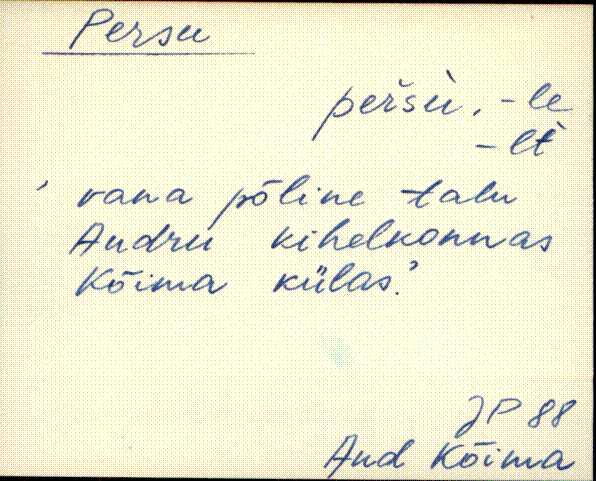 Persu
peršù, -le
-lt
' vana põline talu
Audru kihelkonnas
Kõima külas.'
JP 88
Aud Kõima